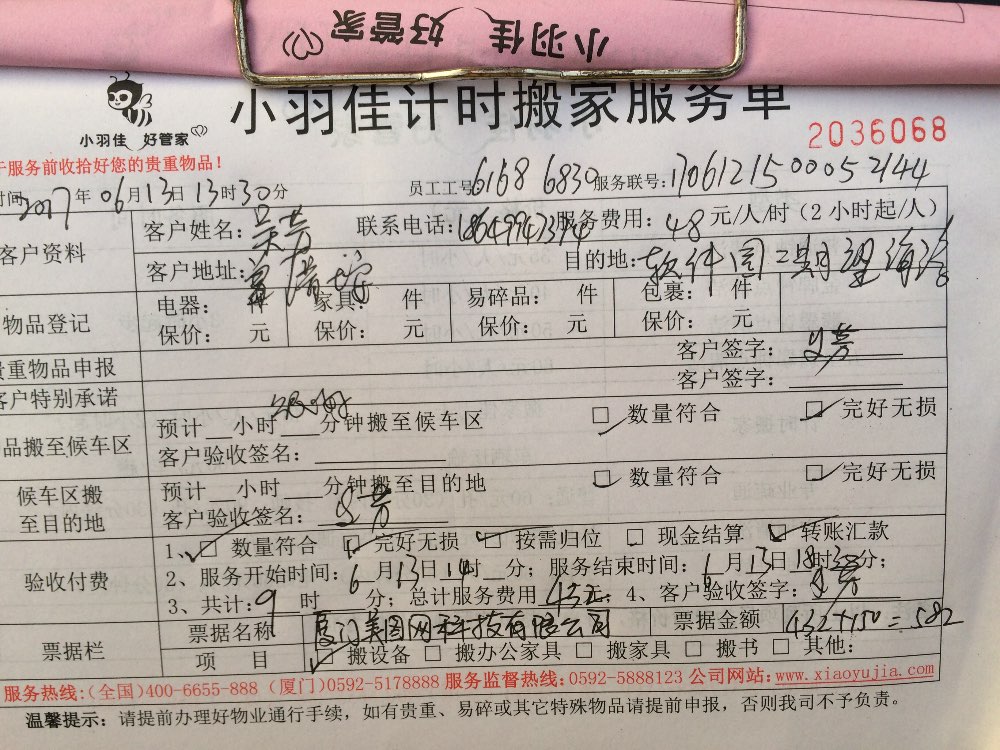 小羽佳 好管家
小羽佳计时搬家服务单
小羽佳 好管家
2036068
于服务前收拾好您的贵重物品！
时间 2017年06月13日13时30分 员工工号 6168 6830 服务联号：
客户资料 客户姓名：吴芳 联系电话： 服务费用：48元/人/时（2小时起/人）
客户地址： 目的地：软件园二期望海路
物品登记 电器： 件 家具： 件 易碎品： 件 包裹： 件
保价： 元 保价： 元 保价： 元 保价： 元
贵重物品申报 客户签字：吴芳
客户特别承诺 客户签字：
品搬至候车区 预计__小时___分钟搬至候车区 □ 数量符合 □ 完好无损
客户验收签名：
候车区搬至目的地 预计__小时___分钟搬至目的地 □ 数量符合 □ 完好无损
客户验收签名：吴芳
验收付费 1、□ 数量符合 □ 完好无损 □ 按需归位 □ 现金结算 □ 转账汇款
2、服务开始时间：6月13日14时__分；服务结束时间：6月13日18时30分；
3、共计：9 时 分；总计服务费用 元；4、客户验收签字：吴芳
票据栏 票据名称 厦门美图网科技有限公司 票据金额 432+150=582
项 目 □ 搬设备 □ 搬办公家具 □ 搬家具 □ 搬书 □ 其他：
服务热线：（全国）400-6655-888（厦门）0592-5178888 服务监督热线：0592-5888123 公司网站：www.xiaoyujia.com
温馨提示：请提前办理好物业通行手续，如有贵重、易碎或其它特殊物品请提前申报，否则我司不予负责。